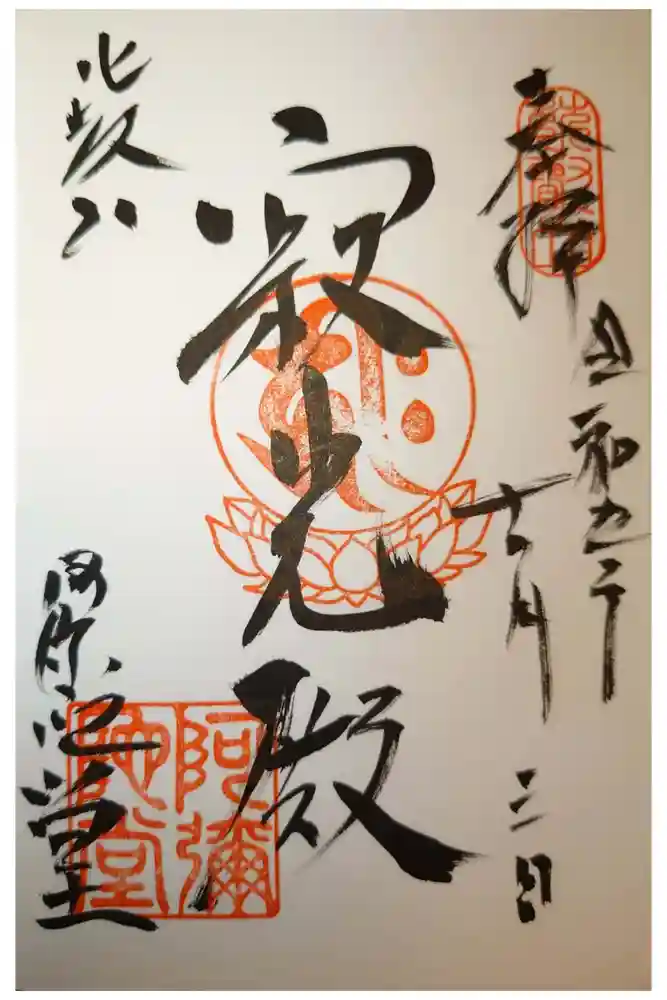 奉拝
令和五年
十一月三日
寂光殿
比叡山
阿弥陀堂
阿彌陀堂